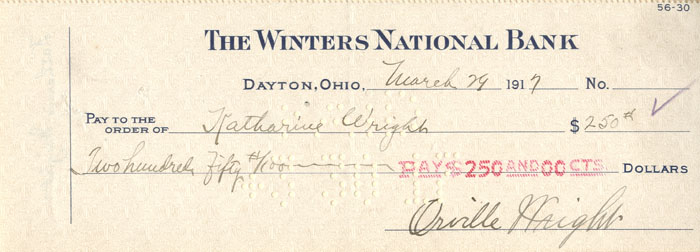 56-30
THE WINTERS NATIONAL BANK
DAYTON, OHIO, March 29 1917 No.
PAY TO THE ORDER OF Katharine Wright $ 250 #
Two hundred fifty #/100 PAYS $250 AND 00 CTS DOLLARS
Orville Wright